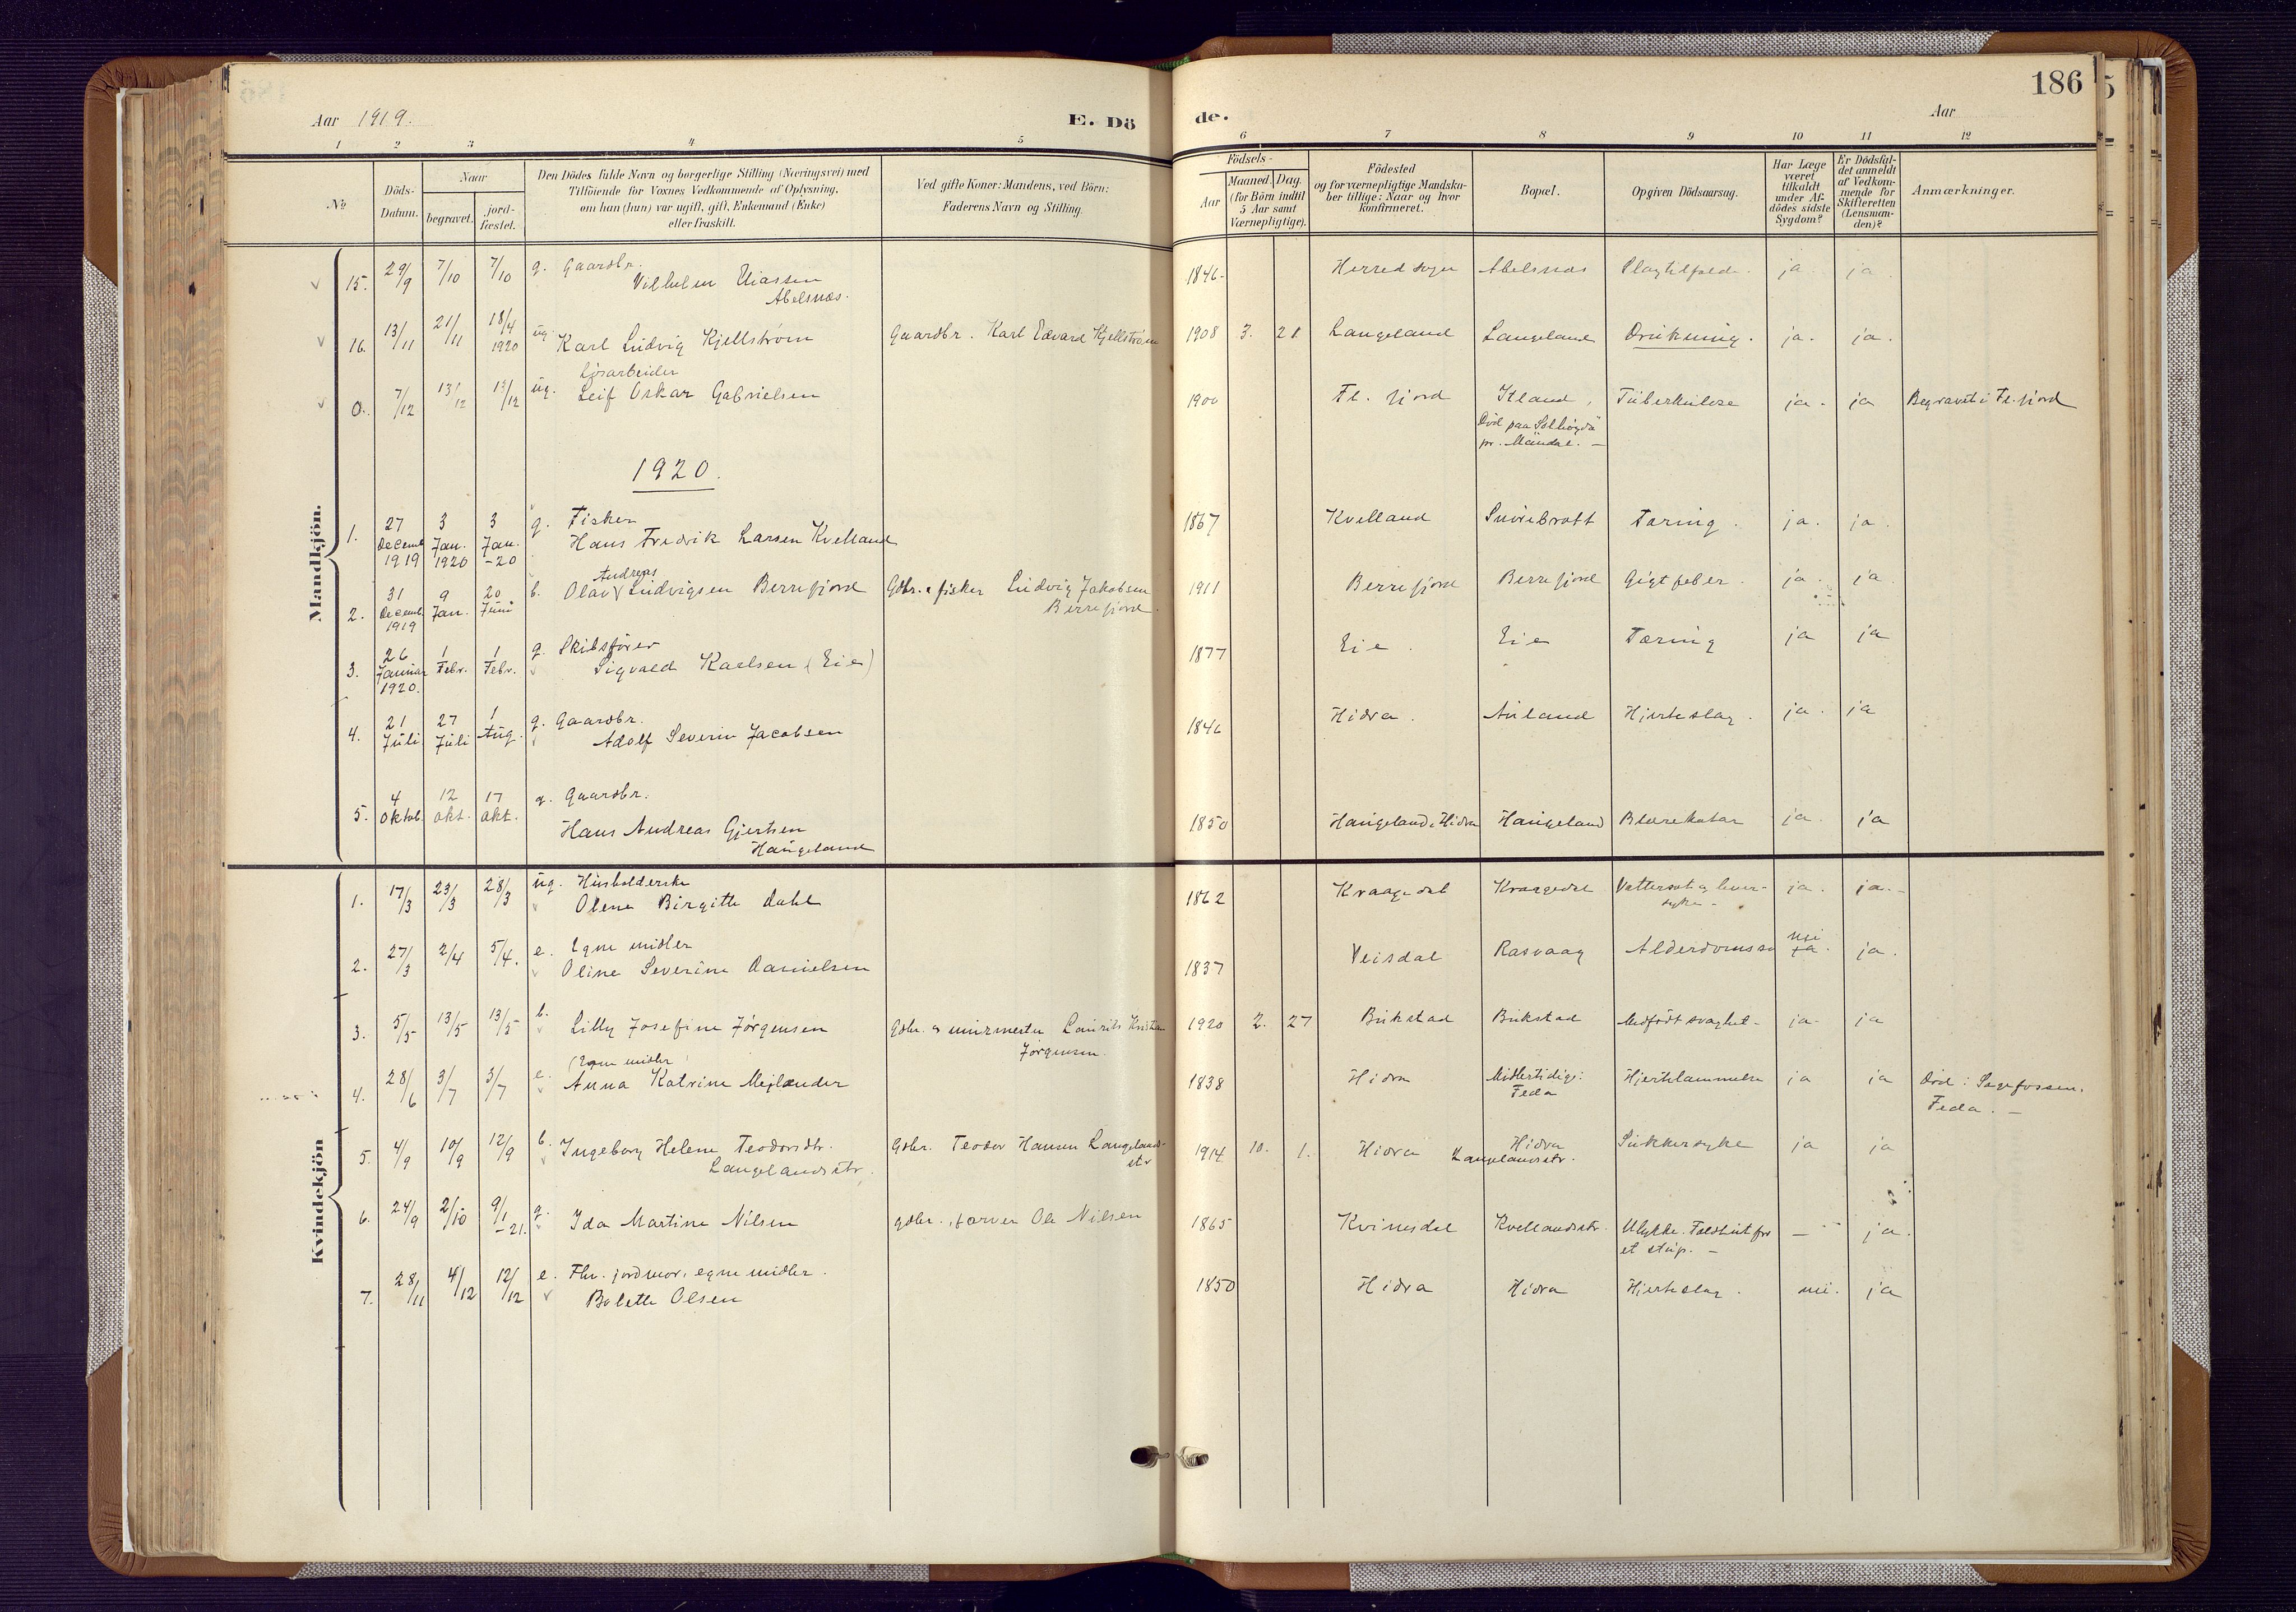 186
Aar 1919. E. Dö de. Aar
1 2 3 4 5 6 7 8 9 10 11 12
No
Döds-Datum.
Naar
begravet.
jord-fæstet.
Den Dödes fulde Navn og borgerlige Stilling (Næringsvei) med
Tilföiende for Voxnes Vedkommende af Oplysning,
om han (hun) var ugift, gift, Enkemand (Enke)
eller fraskilt.
Ved gifte Koner: Mandens, ved Börn:
Faderens Navn og Stilling.
Födsels-
Aar
Maaned. Dag.
(for Börn indtil
5 Aar samt
Værnepligtige).
Födested
og for værnepligtige Mandska-
ber tillige: Naar og hvor
konfirmeret.
Bopæl.
Opgiven Dödsaarsag.
Har Læge
været
tilkaldt
under Af-
dödes sidste
Sygdom?
Er Dödsfal-
det anmeldt
af Vedkom-
mende for
Skifteretten
(Lensman-
den)?
Anmærkninger.
Mandkjön.
15. 29/9 7/10 7/10 g. Gaardbr. 1846- Herred sogn Abelsnæs Slagtilfælde. ja. ja.
Vilhelm Eliassen
Abelsnæs.
16. 13/11 21/11 18/4 1920 ug. Karl Ludvig Kjellstrøm Gaardbr. Karl Edvard Kjellstrøm 1908 3. 21 Langeland Langeland Drukning. ja. ja.
Løsarbeider
0. 7/12 13/12 13/12 ug. Leif Oskar Gabrielsen 1900 Fl. fjord Itland, Tuberkulose ja. ja Begravet i Fl. fjord
Död paa Solhögda
pr. Mandal. -
1920.
1. 27 Decemb 1919 3 Jan. 1920 3 Jan. -20 g. Fisker 1867 Kvelland Snörebrott Tæring. ja. ja.
Hans Fredrik Larsen Kvelland
Andreas
2. 31 Decemb. 1919 9 Jan. 20 Juni b. Olav Ludvigsen Berrefjord Gdbr. & fisker Ludvig Jakobsen 1911 Berrefjord Berrefjord Gigtfeber. ja. ja.
Berrefjord.
3. 26 Januar 1920. 1 Febr. 1 Febr. g. Skibsfører 1877 Eie. Eie Tæring ja ja
Sigvald Karlsen (Eie)
4. 21 Juli 27 Juli 1 Aug. g. Gaardbr. 1846 Hidra. Auland Hjerteslag. ja. ja
Adolf Severin Jacobsen
5. 4 Oktob. 12 okt. 17 okt. g. Gaardbr. 1850 Haugeland, Hidra Haugeland Blærekatar ja. ja
Hans Andreas Gjertsen
Haugeland
Kvindekjön
1. 17/3 23/3 28/3 ug. Husholderske 1862 Kraagedal Kraagedal Vattersot og lever- ja. ja.-
Olene Birgitte Dahl syke -
2. 27/3 2/4 5/4. e. Egne midler 1837 Veisdal Rasvaag Alderdomssv nei ja. ja.
Oline Severine Danielsen
3. 5/5 13/5 13/5 b. Lilly Josefine Jørgensen Gdbr. og murmester Laurits Kristian 1920 2. 27 Bukstad Bukstad Medfødt svaghet- ja- ja
Jørgensen.
(Egne midler)
4. 28/6 3/7 3/7 e. Anna Katrine Mejlænder 1838 Hidra Midlertidig i Hjertelammelse ja ja Död i Sagefossen.
Feda Feda. -
5. 4/9 10/9 12/9 b. Ingeborg Helene Teodorsdtr. Gdbr. Teodor Hansen Langelands- 1914 10. 1. Hidra Hidra Sukkersyke ja ja
Langelandsstr. str Langelandsstr.
6. 24/9 2/10 9/1 -21. g. Ida Martine Nilsen gdbr., farver Ole Nilsen 1865 Kvinesdal Kvellandsstr. Ulykke. Faldt ut for - ja.
et stup. -
7. 28/11 4/12 12/12 e. Fhv. jordmor, egne midler. 1850 Hidra Hidra Hjerteslag. nei. ja
Bolette Olsen